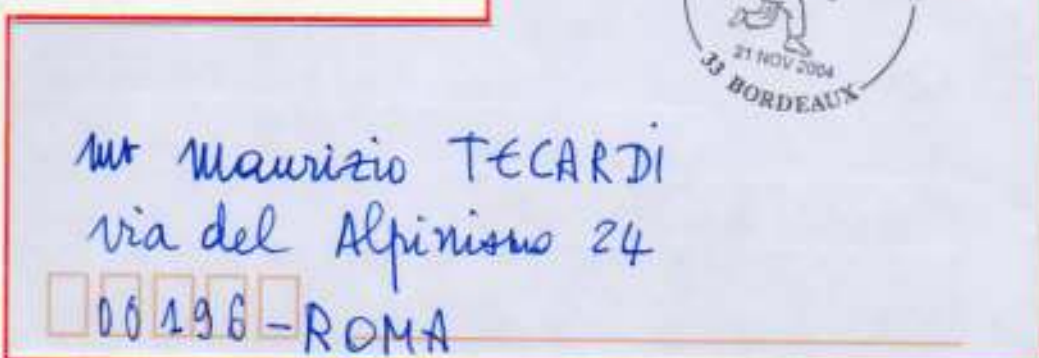 21 NOV 2004
33 BORDEAUX
Mr Maurizio TECARDI
via del Alpinismo 24
00196-ROMA